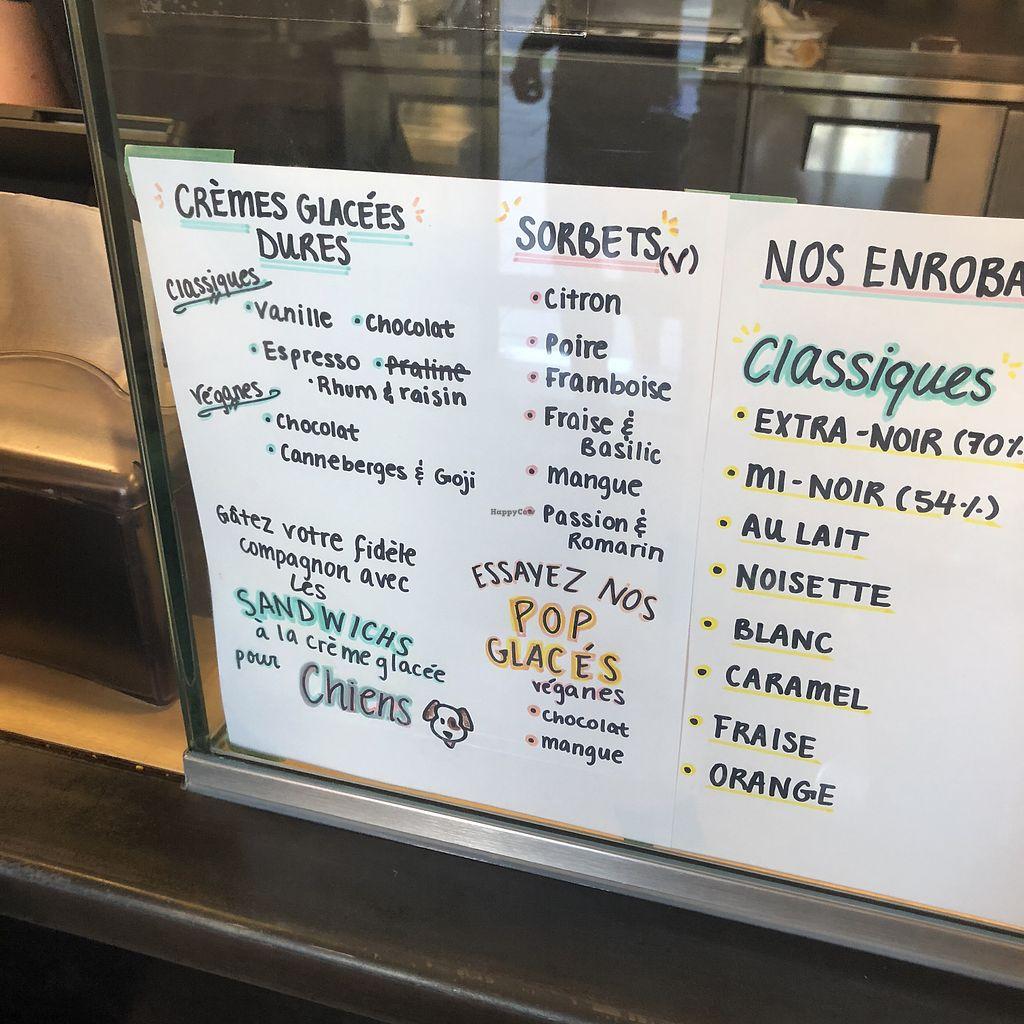 CRÈMES GLACÉES
DURES
Classiques
• Vanille • Chocolat
• Espresso • praline
• Rhum & raisin
Véganes
• Chocolat
• Canneberges & Goji
Gâtez votre fidèle
compagnon avec
Les
SANDWICHS
à la crème glacée
pour Chiens
SORBETS (V)
• Citron
• Poire
• Framboise
• Fraise &
Basilic
• Mangue
• Passion &
Romarin
ESSAYEZ NOS
POP
GLACÉS
véganes
• chocolat
• mangue
NOS ENROBA
Classiques
• EXTRA-NOIR (70%
• MI-NOIR (54%)
• AU LAIT
• NOISETTE
• BLANC
• CARAMEL
• FRAISE
• ORANGE
HappyCow